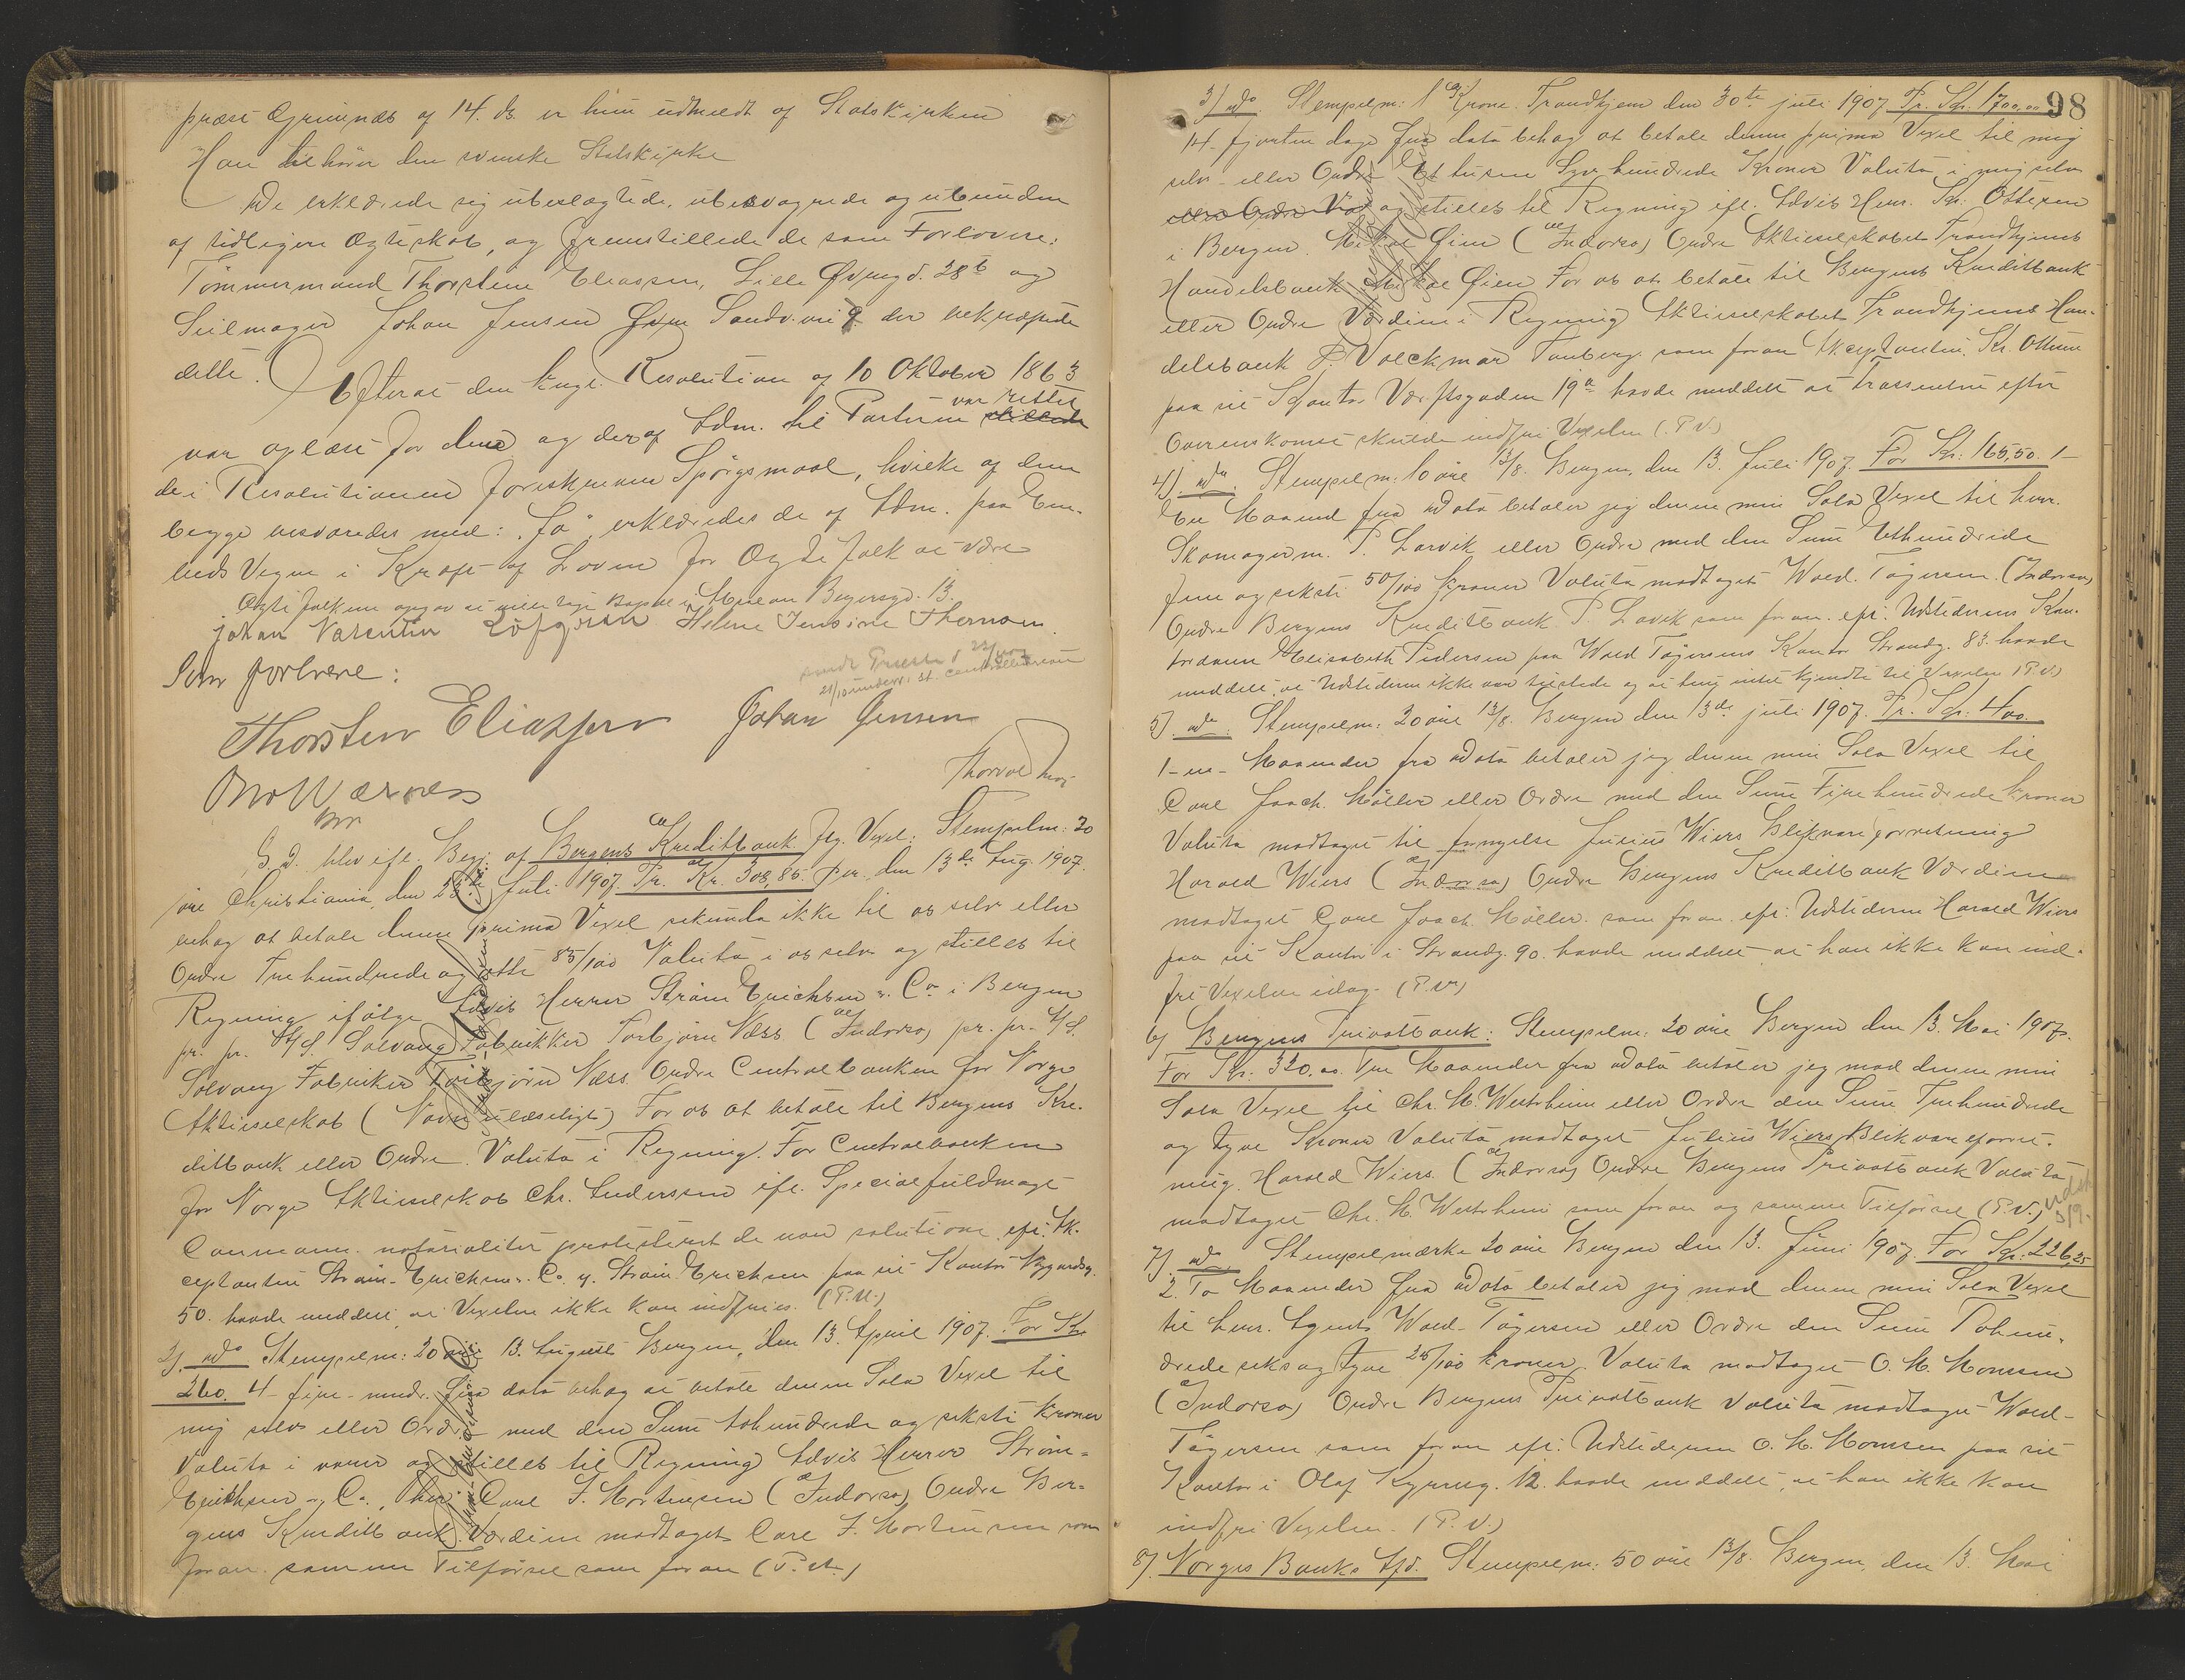 præst Grimnæs af 14. ds. er hun udmeldt af Statskirken
Han tilhører den svenske Statskirke
De erklærede sig ubeslægtede, ubesvogrede og ubunden
af tidligere Ægteskab, og fremstillede de som Forlovere:
Tømmermand Thorsten Eliassen, Lille Øvregd. 28b og
Seilmager Johan Jensen Sandv.vei 9 der bekræftede
dette.
Efterat den kngl. Resolution af 10 Oktober 1863
var oplæst for dem og der af Adm. til Parterne var rettet
de i Resolutionen foreskrevne Spørgsmaal, hvilke af dem
begge besvaredes med: "Ja", erklæredes de af Adm. paa Em-
beds Vegne i Kraft af Loven for Ægtefolk at være
Ægtefolkene opgav at ville tage Bopæl i Beyersgd. 13.
Johan Valentin Löfgren Helene Jensine Thomsen
Som forlovere:
sendt Presten
Thorsten Eliassen Johan Jensen
S. D. blev efl. Begj. af Bergens Kreditbank flg. Vexel: Stempelm: 30
øre Christiania, den 23de Juli 1907. Pr. Kr. 308,85. Per den 13de Aug. 1907.
behag at betale denne prima Vexel sekunda ikke til os selv eller
Ordre Tre hundrede og otte 85/100 Valuta i os selv og stilles til
Regning ifølge Advis Herrer Strøm Erichsen & Co i Bergen
pr. pr. A/S. Solvang Fabrikker Torbjørn Næss (Indorso) pr. pr. A/S.
Solvang Fabrikker Torbjørn Næss Ordre Centralbanken for Norge
Aktieselskab (Navn ulæseligt) For os at betale til Bergens Kre-
ditbank eller Ordre. Valuta i Regning. For Centralbanken
for Norge Aktieselskab Chr. Anderssen efl. Specialfuldmagt
notarialiter protesteret de non solutione, eft. Ak-
ceptanten Strøm-Erichsen & Co. v. Strøm Erichsen paa sit Kontor Nygaardsg.
50. havde meddelt, at Vexelen ikke kan indfries. (P.N.)
2). do Stempelm: 20 øre 13. August Bergen, den 13. April 1907. For Kr.
260. 4- fire- mndr. fra dato behag at betale denne Sola Vexel til
mig selv eller Ordre med den Sum tohundrede og seksti Kroner
Valuta i varer og stilles til Regning Advis Herrer Strøm-
Erichsen & Co., her. Carl J. Mortensen (Indorso) Ordre Ber-
gens Kreditbank Værdien modtaget Carl J. Mortensen som
foran. samme Tilførsel som foran (P.N.)
98
3) do. Stempelm: 1 Krone. Trondhjem den 30te juli 1907 Pr. Kr. 1700,00
14- fjorten dage fra dato behag at betale denne prima Vexel til mig
selv- eller Ordre Et tusen Syv hundrede Kroner Valuta i mig selv
og stilles til Regning efl. Advis Herr. Kr. Ottesen
i Bergen. Øien (Indorso) Ordre Aktieselskabet Trondhjems
Handelsbank Øien For os at betale til Bergens Kreditbank
eller Ordre Værdien i Regning Aktieselskabet Trondhjems Han-
delsbank P. Volckmar Tonberg. som foran Akceptanten. Kr. Ottesen
paa sit Kontor Værftsgaden 19a havde meddelt at Trassenten efter
Overenskomst skulde indfri Vexelen (P.N.)
4) do. Stempelm: 10 øre 13/8. Bergen, den 13. Juli 1907. For Kr: 165,50. 1-
En Maaned fra Dato betaler jeg denne min Sola Vexel til herr.
Skomagerm. P. Larvik eller Ordre med den Sum Ethundrede
fem og seksti 50/100 Kroner Valuta modtaget Wold. Tøgersen. (Indorso)
Ordre Bergens Kreditbank P. Lavik som foran. eft: Udstederens Kon-
tordame Elisabeth Pedersen paa Wold Tøgersens Kontor Strandg. 83. havde
meddelt, at Udstederen ikke var tilstede og at hun intet kjendte til Vexelen (P.N.)
5). do. Stempelm: 20 øre 13/8. Bergen den 13de juli 1907. Pr. Kr: 400.
1- en- Maaneder fra Dato betaler jeg denne min Sola Vexel til
Carl Joach. Møller eller Ordre med den Sum Fire hundrede Kroner
Valuta modtaget til fornyelse Julius Wiers Blikvareforretning
Harald Wiers (Indorso) Ordre Bergens Kreditbank Værdien
modtaget Carl Joach. Møller. som foran. eft: Udstederen Harald Wiers
paa sit Kontor i Strandg. 90. havde meddelt at han ikke kan ind-
fri Vexelen idag. (P.N.)
6) Bergens Privatbank: Stempelm: 20 øre Bergen den 13. Mai 1907.
For Kr. 320.00. Tre Maaneder fra Dato betaler jeg mod denne min
Sola Vexel til Chr. M. Westrheim eller Ordre den Sum Trehundrede
og tyve Kroner Valuta modtaget Julius Wiers Blikvareforret-
ning. Harald Wiers. (Indorso) Ordre Bergens Privatbank Valuta
modtaget Chr. M. Westrheim som foran og samme Tilførsel (P.N.)
7) do. Stempelmærke 20 øre Bergen den 13. Juni 1907. For Kr. 226,25
2. To Maaneder fra Dato betaler jeg mod denne min Sola Vexel
til herr. Agent Wold-Tøgersen eller Ordre den Sum Tohun-
drede seks og tyve 25/100 kroner. Valuta modtaget O. M. Monsen
(Indorso) Ordre Bergens Privatbank Valuta modtaget Wold-
Tøgersen som foran eft: Udstederen O. M. Monsen paa sit
Kontor i Olaf Kyrresg. 12. havde meddelt, at han ikke kan
indfri Vexelen. (P.N.)
8). Norges Banks Afd. Stempelm: 50 øre 13/8. Bergen, den 13. Mai